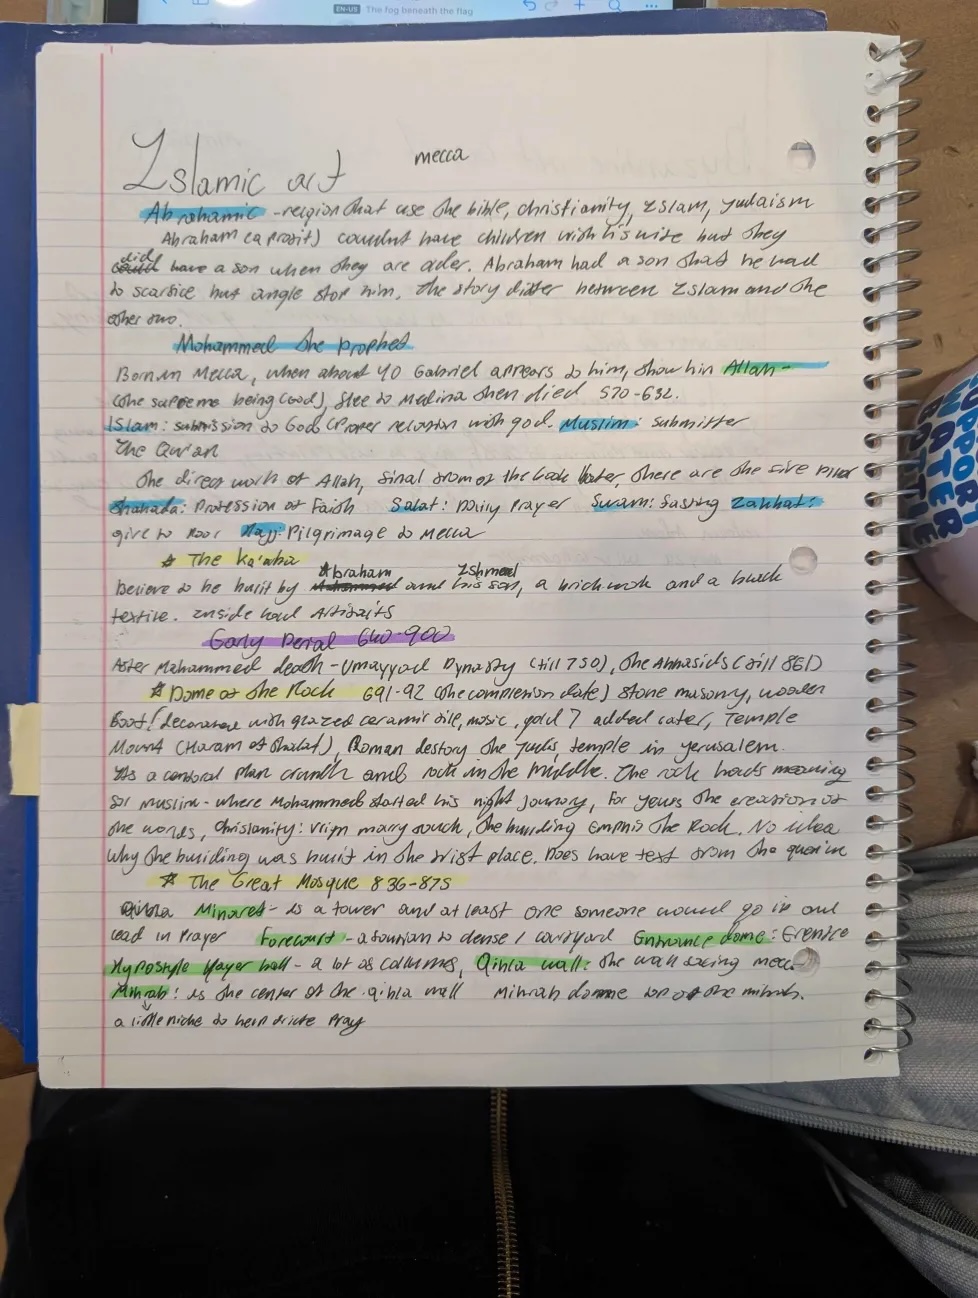 EN-US The fog beneath the flag
mecca
Islamic art
Abrahamic - religion that use the bible, christianity, Islam, Judaism
Abraham (a profit) couldnt have children with his wife but they
did
could have a son when they are older. Abraham had a son that he had
to scarfice but angle stop him. The story differ between Islam and the
other two.
Mohammed the prophet
Born in Mecca, when about 40 Gabriel appears to him, show him Allah -
(the supreme being (God), flee to Medina then died 570-632.
Islam: submission to God (Proper relation with god. Muslim: submitter
The Qur'an
The direct work of Allah, final from of the book there are the five
Shahada: Profession of Faith Salat: Daily Prayer Swam: fasting Zakhat:
give to Poor Hajj: Pilgrimage to Mecca
* The Ka'aba
Abraham Ishmeal
believe to be built by and his son, a brick and a black
textire. Inside had Artifaits
Early Perial 640-900
After Mahammed death - Umayyad Dynasty (till 750), the Abbasids (till 861)
* Dome of the Rock 691-92 (the complension date) stone masonry, wooden
Roof! decorated with glazed ceramic tile, mosic, gold 7 added later, Temple
Mount (Haram of ), Roman destory the temple in Jerusalem.
As a central plan and rock in the middle. The rock meaning
for muslim - where Mohammed started his night journy, For the creation of
the worlds, Christianity: marry the building the Rock. No idea
why the building was built in the frist place. Does have text from the
* The Great Mosque 836-875
Qibla Minaret - is a tower and at least one someone would go in and
lead in Prayer Forecourt - a to / courtyard Entrance dome:
Hypostyle Prayer hall - a lot of collumes, Qibla wall: the wall facing
Mihrab: is the center of the qibla wall Mihrab top of the mihrab.
a little niche to help Pray
SUPPORT
WATER
BOTTLE